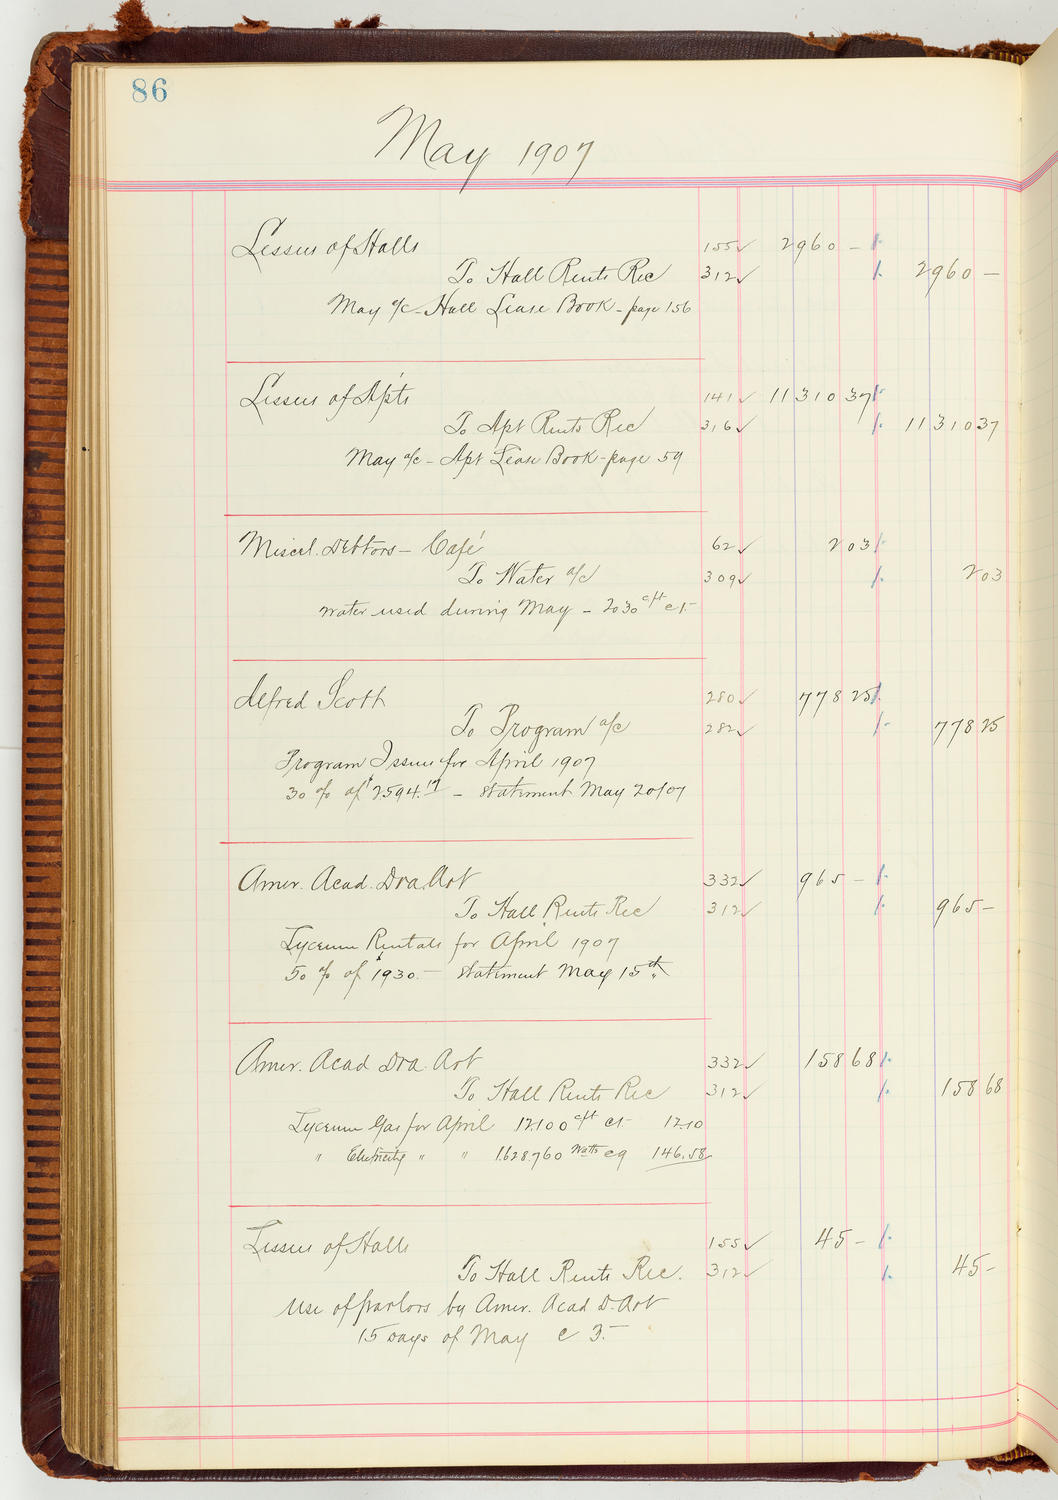 86
May 1907
Lessees of Halls 155 ✓ 2960 –
To Hall Rents Rec 312 ✓ 2960 –
May a/c – Hall Lease Book – page 156
Lessees of Apts 141 ✓ 11310 37
To Apt Rents Rec 316 ✓ 11310 37
May a/c – Apt Lease Book – page 59
Miscel. Debtors – Café 62 ✓ 2 03
To Water a/c 309 ✓ 2 03
Water used during May – 2030 c/ft @ 1–
Alfred Scott 280 ✓ 778 25
To Program a/c 282 ✓ 778 25
Program Issues for April 1907
30 % of $2594.17 – statement May 20/07
Amer. Acad. Dra. Art 332 ✓ 965 –
To Hall Rents Rec 312 ✓ 965 –
Lyceum Rentals for April 1907
50 % of $1930.– statement May 15th
Amer. Acad Dra. Art 332 ✓ 158 68
To Hall Rents Rec 312 ✓ 158 68
Lyceum Gas for April 12100 c/ft @ 1– 12.10
" Electricity " " 1.628.760 Watts @ 9 146.58
Lessees of Halls 155 ✓ 45 –
To Hall Rents Rec. 312 ✓ 45 –
Use of parlors by Amer. Acad D. Art
15 days of May @ 3.–